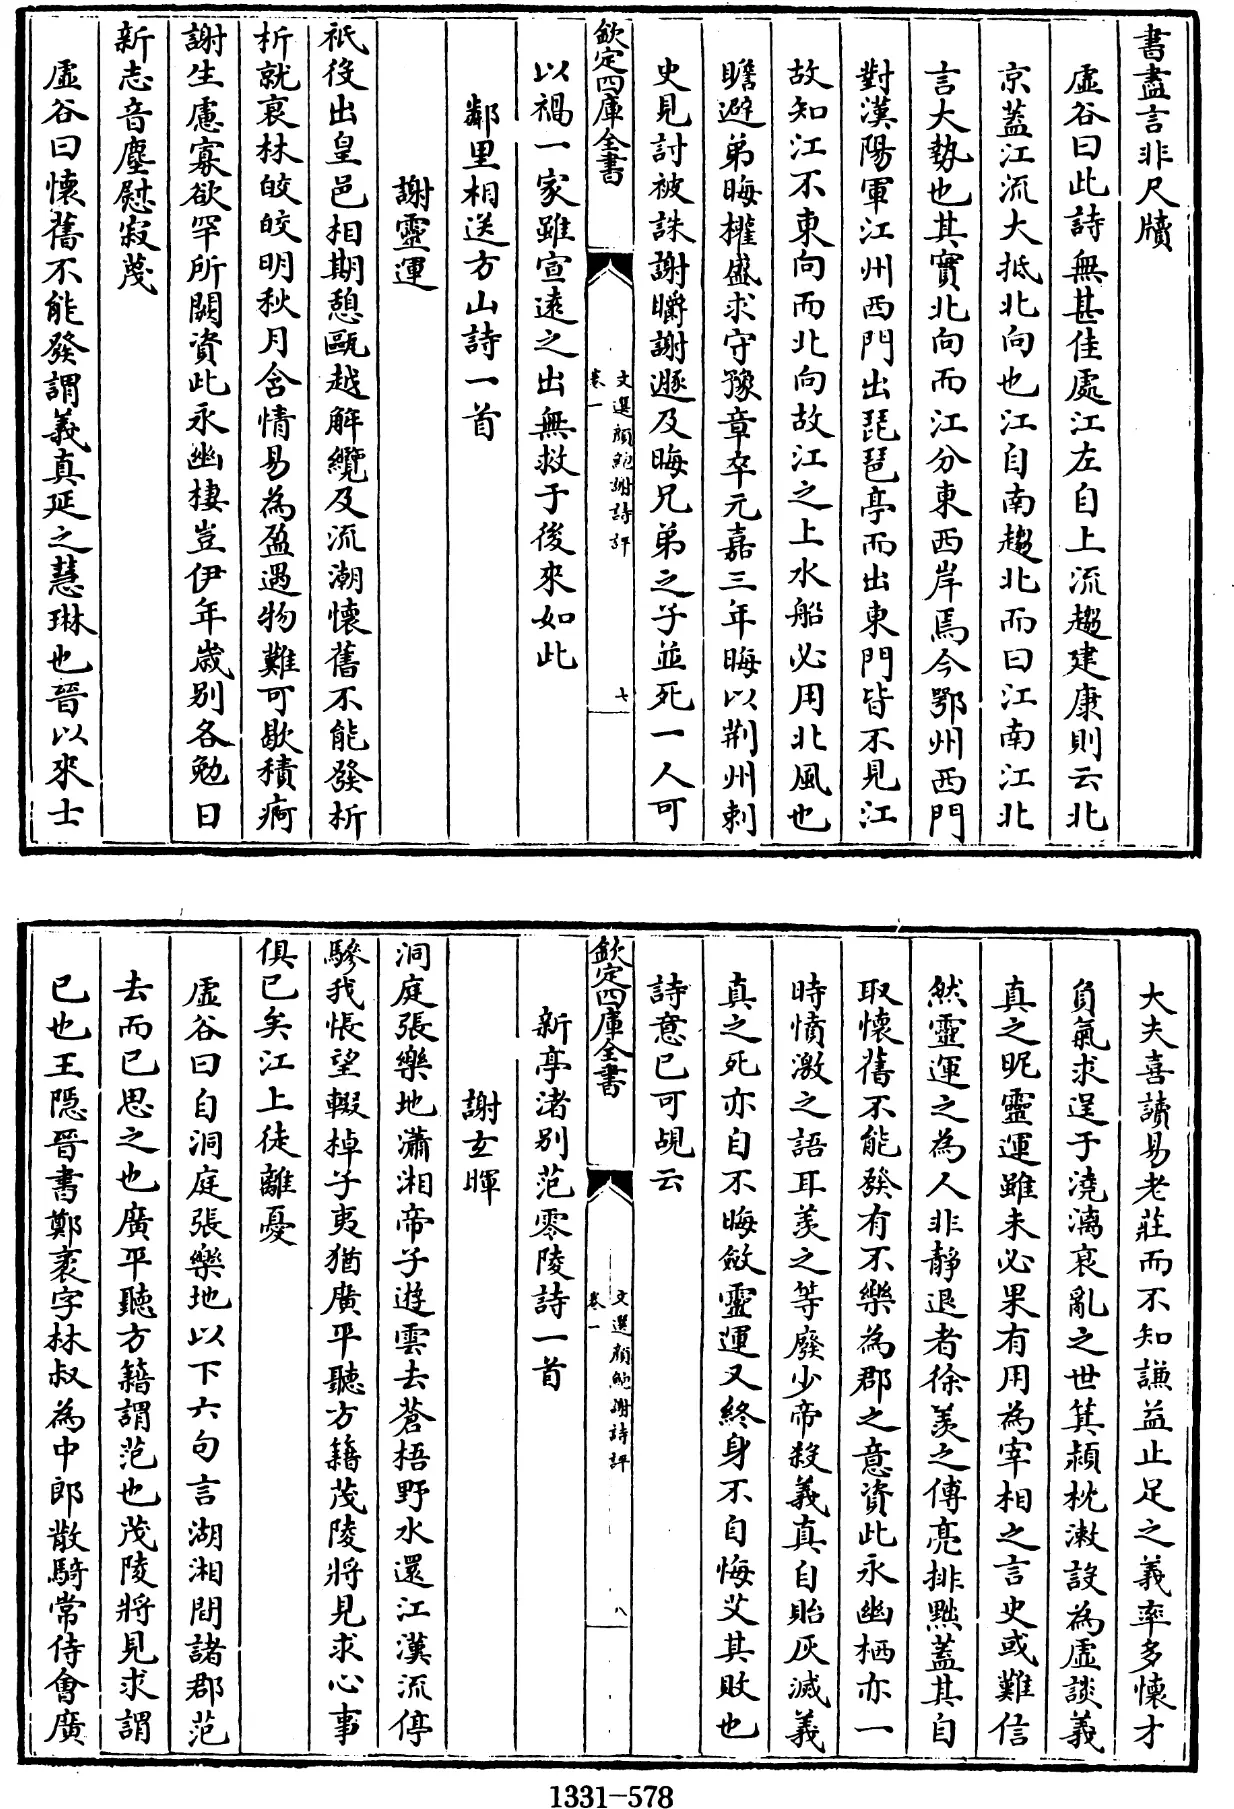 書盡言非尺牘
虛谷曰此詩無甚佳處江左自上流趨建康則云北
京蓋江流大抵北向也江自南趨北而曰江南江北
言大勢也其實北向而江分東西岸焉今鄂州西門
對漢陽軍江州西門出琵琶亭而出東門皆不見江
故知江不東向而北向故江之上水船必用北風也
瞻避弟晦權盛求守豫章卒元嘉三年晦以荆州刺
史見討被誅謝㬭謝遯及晦兄弟之子並死一人可
欽定四庫全書
文選顔鮑謝詩評
卷一
七
以禍一家雖宣遠之出無救于後來如此
鄰里相送方山詩一首
謝靈運
祇役出皇邑相期憩甌越解纜及流潮懷舊不能發析
析就衰林皎皎明秋月含情易為盈遇物難可歇積疴
謝生慮寡欲罕所闕資此永幽棲豈伊年歲别各勉日
新志音塵慰寂蔑
虛谷曰懷舊不能發謂義真延之慧琳也晉以來士
大夫喜讀易老莊而不知謙益止足之義率多懷才
負氣求逞于澆漓衰亂之世箕潁枕漱設為虛談義
真之昵靈運雖未必果有用為宰相之言史或難信
然靈運之為人非靜退者徐羡之傅亮排黜蓋其自
取懷舊不能發有不樂為郡之意資此永幽栖亦一
時憤激之語耳羡之等廢少帝殺義真自貽灰滅義
真之死亦自不晦斂靈運又終身不自悔艾其敗也
詩意已可覘云
欽定四庫全書
文選顔鮑謝詩評
卷一
八
新亭渚别范零陵詩一首
謝玄暉
洞庭張樂地瀟湘帝子遊雲去蒼梧野水還江漢流停
驂我悵望輟棹子夷猶廣平聽方籍茂陵將見求心事
俱已矣江上徒離憂
虛谷曰自洞庭張樂地以下六句言湖湘間諸郡范
去而已思之也廣平聽方籍謂范也茂陵將見求謂
已也王隠晉書鄭袤字林叔為中郎散騎常侍會廣
1331-578